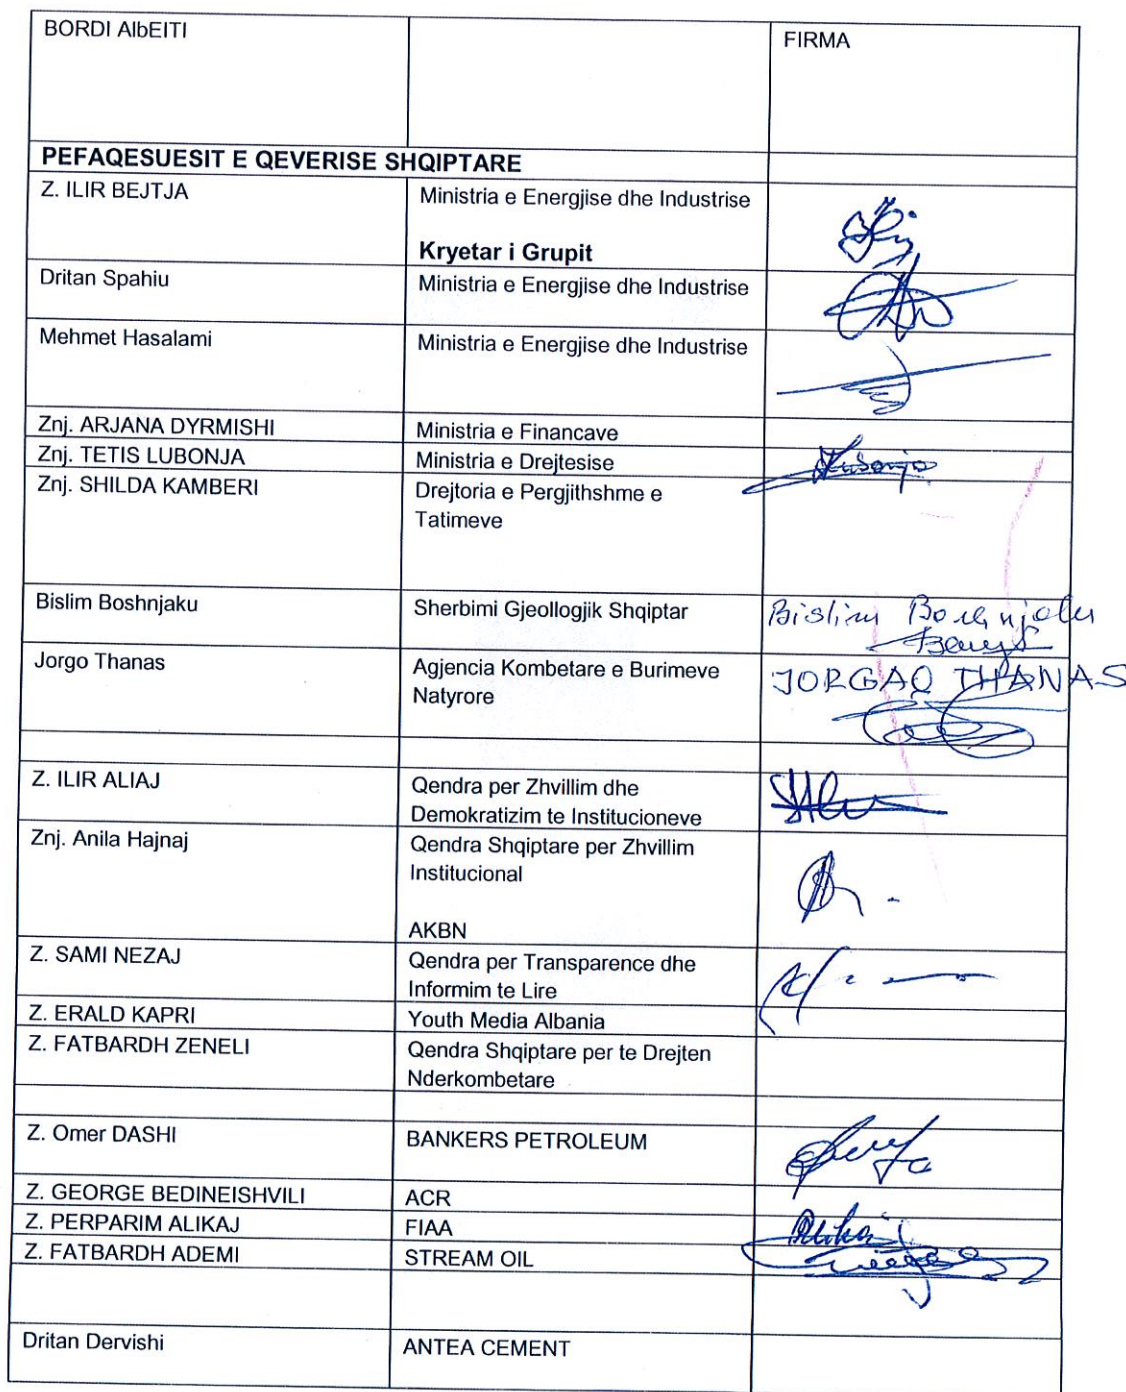 BORDI AlbEITI
FIRMA
PEFAQESUESIT E QEVERISE SHQIPTARE
Z. ILIR BEJTJA
Ministria e Energjise dhe Industrise
Kryetar i Grupit
Dritan Spahiu
Ministria e Energjise dhe Industrise
Mehmet Hasalami
Ministria e Energjise dhe Industrise
Znj. ARJANA DYRMISHI
Ministria e Financave
Znj. TETIS LUBONJA
Ministria e Drejtesise
Lubonja
Znj. SHILDA KAMBERI
Drejtoria e Pergjithshme e
Tatimeve
Bislim Boshnjaku
Sherbimi Gjeollogjik Shqiptar
Bislim
Jorgo Thanas
Agjencia Kombetare e Burimeve
Natyrore
JORGAQ THANAS
Z. ILIR ALIAJ
Qendra per Zhvillim dhe
Demokratizim te Institucioneve
Znj. Anila Hajnaj
Qendra Shqiptare per Zhvillim
Institucional
AKBN
Z. SAMI NEZAJ
Qendra per Transparence dhe
Informim te Lire
Z. ERALD KAPRI
Youth Media Albania
Z. FATBARDH ZENELI
Qendra Shqiptare per te Drejten
Nderkombetare
Z. Omer DASHI
BANKERS PETROLEUM
Z. GEORGE BEDINEISHVILI
ACR
Z. PERPARIM ALIKAJ
FIAA
Z. FATBARDH ADEMI
STREAM OIL
Dritan Dervishi
ANTEA CEMENT